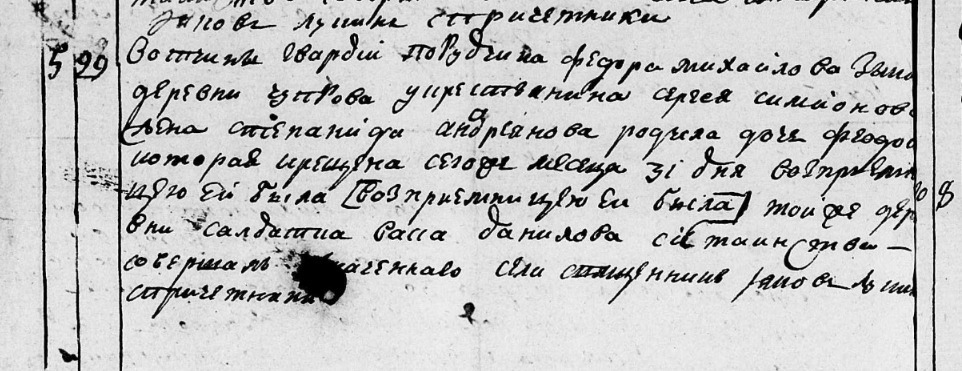 Іаковъ лукинъ спричетники
5 99 Вотчины Гвардіи порудчика федора михаилова
деревни у крестьянина сергея симионова
жена степанида андреянова родила дочь феодо
которая крещена сегоже месяца 3і дня восприемни
цею ей была [восприемницею ей была] тойже дер
вни салдатка васса данилова сіе таинство
совершалъ села священникъ Іаковъ лукин
спричетники
8